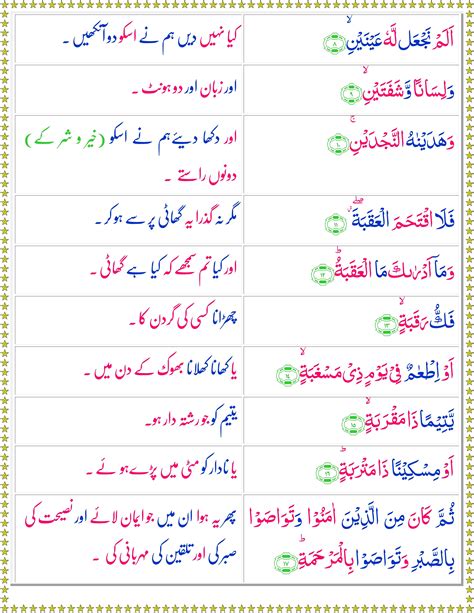 اَلَمۡ نَجۡعَلۡ لَّهٗ عَيۡنَيۡنِۙ ﴿۸﴾
کیا نہیں دیں ہم نے اسکو دو آنکھیں ۔
وَلِسَانًا وَّشَفَتَيۡنِۙ ﴿۹﴾
اور زبان اور دو ہونٹ ۔
وَهَدَيۡنٰهُ النَّجۡدَيۡنِۚ ﴿۱۰﴾
اور دکھا دیئے ہم نے اسکو (خیر و شر کے)
دونوں راستے ۔
فَلَا اقۡتَحَمَ الۡعَقَبَةَ ۖ ﴿۱۱﴾
مگر نہ گذرا یہ گھاٹی پر سے ہو کر ۔
وَمَاۤ اَدۡرٰٮكَ مَا الۡعَقَبَةُ ؕ ﴿۱۲﴾
اور کیا تم سمجھے کہ کیا ہے گھاٹی ۔
فَكُّ رَقَبَةٍ ۙ ﴿۱۳﴾
چھڑانا کسی کی گردن کا ۔
اَوۡ اِطۡعٰمٌ فِىۡ يَوۡمٍ ذِىۡ مَسۡغَبَةٍ ۙ ﴿۱۴﴾
یا کھانا کھلانا بھوک کے دن میں ۔
يَّتِيۡمًا ذَا مَقۡرَبَةٍ ۙ ﴿۱۵﴾
یتیم کو جو رشتہ دار ہو ۔
اَوۡ مِسۡكِيۡنًا ذَا مَتۡرَبَةٍ ؕ ﴿۱۶﴾
یا نادار کو مٹی میں پڑے ہوئے ۔
ثُمَّ كَانَ مِنَ الَّذِيۡنَ اٰمَنُوۡا وَتَوَاصَوۡا
بِالصَّبۡرِ وَتَوَاصَوۡا بِالۡمَرۡحَمَةِ ؕ ﴿۱۷﴾
پھر یہ ہوا ان میں جو ایمان لائے اور نصیحت کی
صبر کی اور تلقین کی مہربانی کی ۔